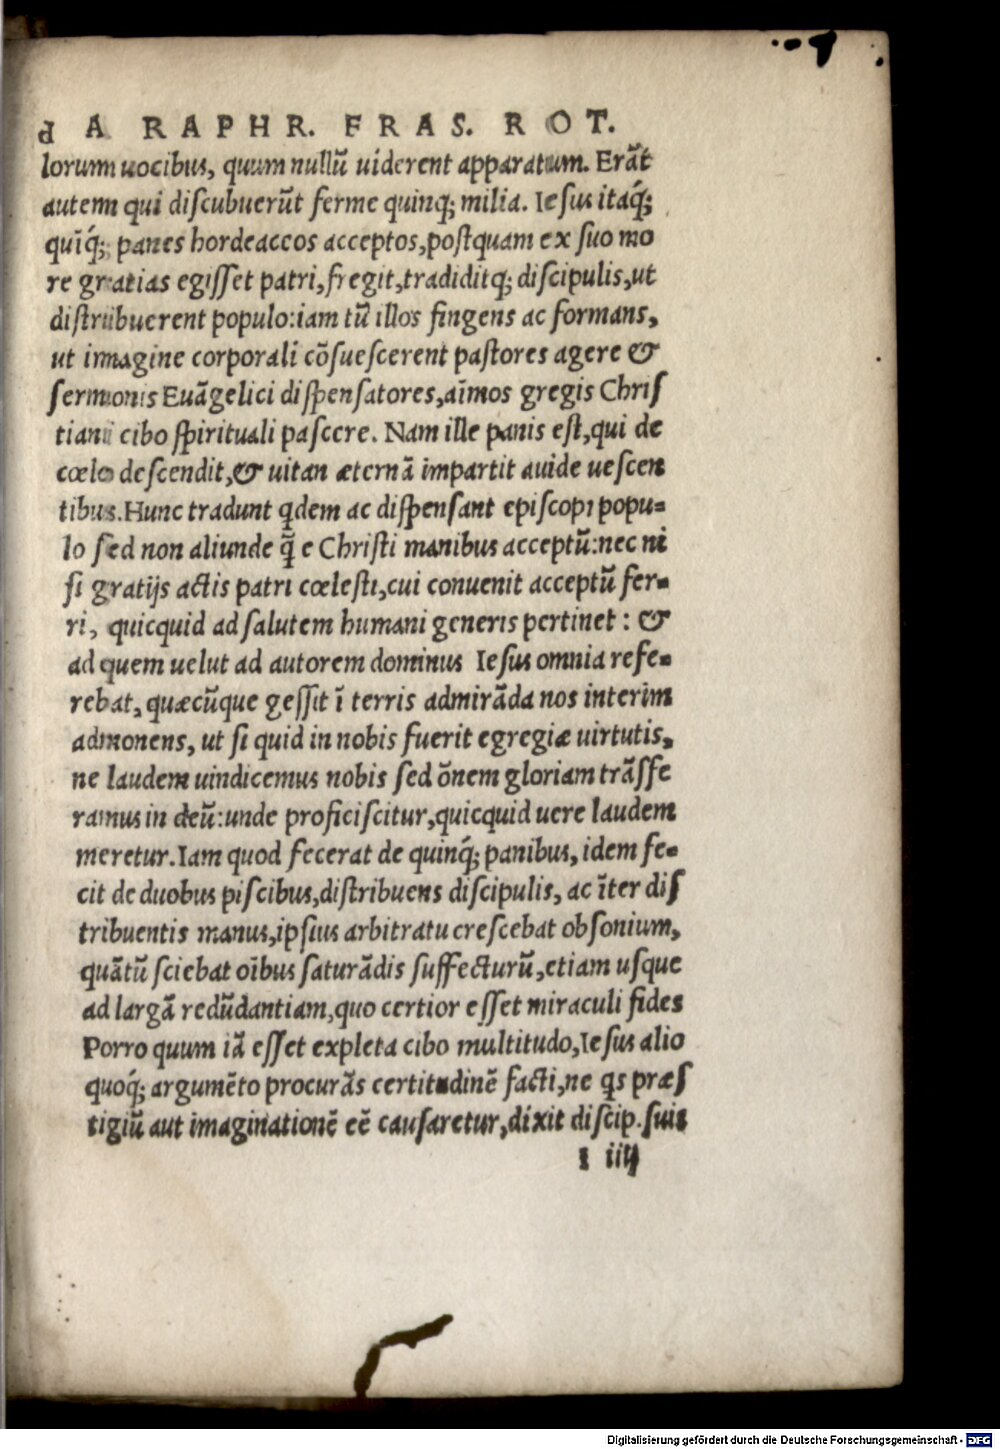 d A RAPHR. FRAS. ROT.
lorum uocibus, quum nullũ uiderent apparatum. Erãt
autem qui diſcubuerũt ferme quinq; milia. Ieſus itaq́;
quĩq́; panes hordeaceos acceptos,poſtquam ex ſuo mo
re gratias egiſſet patri,fregit,tradiditq; diſcipulis,ut
diſtribuerent populo:iam tũ illos fingens ac formans,
ut imagine corporali cõſueſcerent paſtores agere &
ſermonis Euãgelici diſpenſatores,aĩmos gregis Chriſ
tiani cibo ſpirituali paſcere. Nam ille panis eſt,qui de
cœlo deſcendit,& uitan æternã impartit auide ueſcen
tibus.Hunc tradunt qdem ac diſpenſant epiſcopi popu-
lo ſed non aliunde q̃ e Chriſti manibus acceptũ:nec ni
ſi gratijs actis patri cœleſti,cui conuenit acceptũ fer-
ri, quicquid ad ſalutem humani generis pertinet : &
ad quem uelut ad autorem dominus Ieſus omnia refe-
rebat, quæcũque geſſit ĩ terris admirãda nos interim
admonens, ut ſi quid in nobis fuerit egregiæ uirtutis,
ne laudem uindicemus nobis ſed õnem gloriam trãſfe
ramus in deũ:unde proficiſcitur,quicquid uere laudem
meretur.Iam quod fecerat de quinq́; panibus, idem fe-
cit de duobus piſcibus,diſtribuens diſcipulis, ac ĩter diſ
tribuentis manus,ipſius arbitratu creſcebat obſonium,
quãtũ ſciebat oĩbus ſaturãdis ſuffecturũ,etiam uſque
ad largã redũdantiam,quo certior eſſet miraculi fides
Porro quum iã eſſet expleta cibo multitudo,Ieſus alio
quoq́; argumẽto procurãs certitudinẽ facti,ne qs præſ
tigiũ aut imaginationẽ eẽ cauſaretur,dixit diſcip.ſuis
l iiij
Digitalisierung gefördert durch die Deutsche Forschungsgemeinschaft - DFG